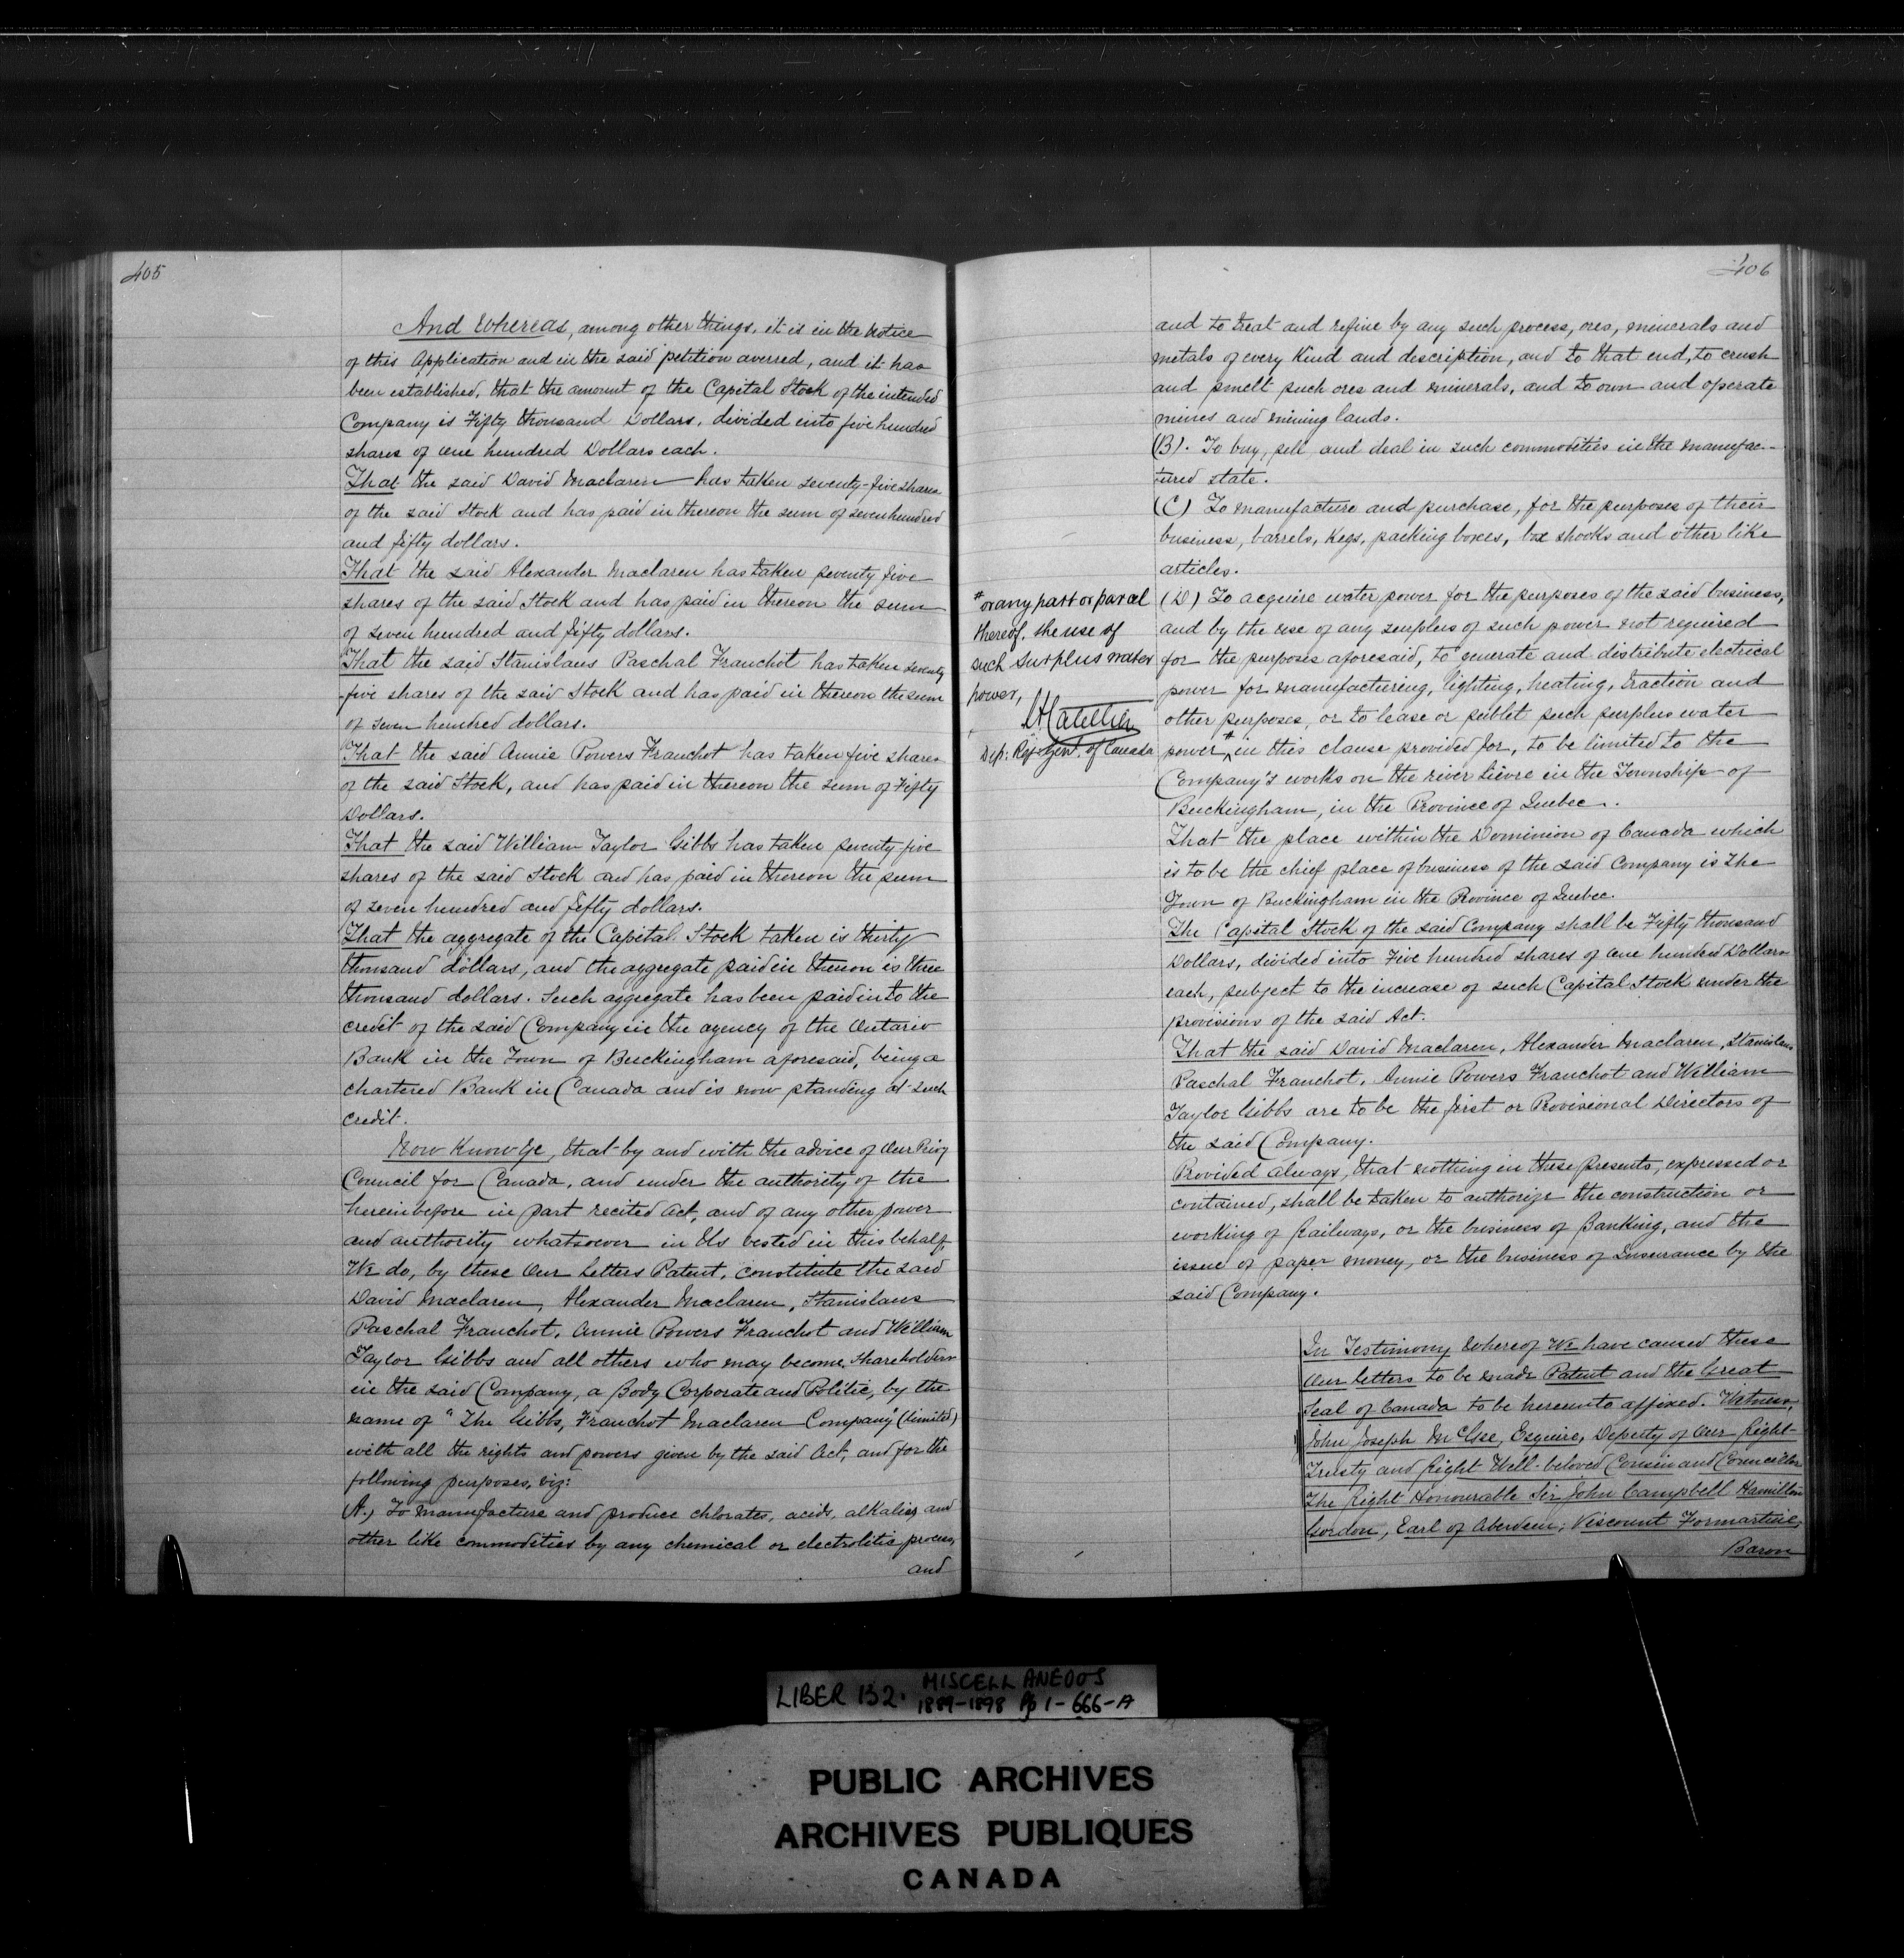 405
And Whereas, among other things, it is in the Notice
of this Application and in the said petition averred, and it has
been established, that the amount of the Capital Stock of the intended
Company is Fifty thousand Dollars, divided into five hundred
shares of one hundred Dollars each.
That the said David Maclaren has taken seventy-five shares
of the said Stock and has paid in thereon the sum of seven hundred
and fifty dollars.
That the said Alexander Maclaren has taken seventy five
shares of the said Stock and has paid in thereon the sum
of seven hundred and fifty dollars.
That the said Stanislaus Paschal Franchot has taken seventy
five shares of the said Stock and has paid in thereon the sum
of seven hundred dollars.
That the said Annie Powers Franchot has taken five shares
of the said Stock, and has paid in thereon the sum of Fifty
Dollars.
That the said William Taylor Gibbs has taken seventy-five
shares of the said Stock and has paid in thereon the sum
of seven hundred and fifty dollars.
That the aggregate of the Capital Stock taken is thirty
thousand dollars, and the aggregate paid in thereon is three
thousand dollars. Such aggregate has been paid in to the
credit of the said Company in the agency of the Ontario
Bank in the Town of Buckingham aforesaid, being a
chartered Bank in Canada and is now standing at such
credit.
Now Know Ye, that by and with the advice of Our Privy
Council for Canada, and under the authority of the
hereinbefore in part recited Act, and of any other power
and authority whatsoever in Us vested in this behalf,
We do, by these Our Letters Patent, constitute the said
David Maclaren, Alexander Maclaren, Stanislaus
Paschal Franchot, Annie Powers Franchot and William
Taylor Gibbs and all others who may become Shareholders
in the said Company, a Body Corporate and Politic, by the
name of "The Gibbs, Franchot Maclaren Company" (Limited)
with all the rights and powers given by the said Act, and for the
following purposes, viz:
(A.) To manufacture and produce chlorates, acids, alkalies and
other like commodities by any chemical or electrolitic process,
and
406
and to treat and refine by any such process, ores, minerals and
metals of every Kind and description, and to that end, to crush
and smelt such ores and minerals, and to own and operate
mines and mining lands.
(B). To buy, sell and deal in such commodities in the manufac-
tured state.
(C) To manufacture and purchase, for the purposes of their
business, barrels, Kegs, packing boxes, box shooks and other like
articles.
(D) To acquire water power for the purposes of the said business,
and by the use of any surplus of such power not required
for the purposes aforesaid, to generate and distribute electrical
power for manufacturing, lighting, heating, traction and
other purposes, or to lease or sublet such surplus water
power # in this clause provided for, to be limited to the
Company's works on the river Lievre in the Township of
Buckingham, in the Province of Quebec.
# or any part or parcel
thereof, the use of
such surplus water
power,
Dep: Reg: Genl. of Canada
That the place within the Dominion of Canada which
is to be the chief place of business of the said Company is the
Town of Buckingham in the Province of Quebec.
The Capital Stock of the said Company shall be Fifty thousand
Dollars, divided into Five hundred shares of One hundred Dollars
each, subject to the increase of such Capital Stock under the
provisions of the said Act.
That the said David Maclaren, Alexander Maclaren, Stanislaus
Paschal Franchot, Annie Powers Franchot and William
Taylor Gibbs are to be the first or Provisional Directors of
the said Company.
Provided always, that nothing in these Presents, expressed or
contained, shall be taken to authorize the construction or
working of Railways, or the business of Banking, and the
issue of paper money, or the business of Insurance by the
said Company.
In Testimony Whereof We have caused these
Our Letters to be made Patent and the Great
Seal of Canada to be hereunto affixed. Witness,
John Joseph McGee, Esquire, Deputy of Our Right-
Trusty and Right Well-beloved Cousin and Councillor
The Right Honourable Sir John Campbell Hamilton
Gordon, Earl of Aberdeen; Viscount Formartine,
Baron
LIBER 132. MISCELLANEOUS
1889-1898 Pp 1-666-A
PUBLIC ARCHIVES
ARCHIVES PUBLIQUES
CANADA